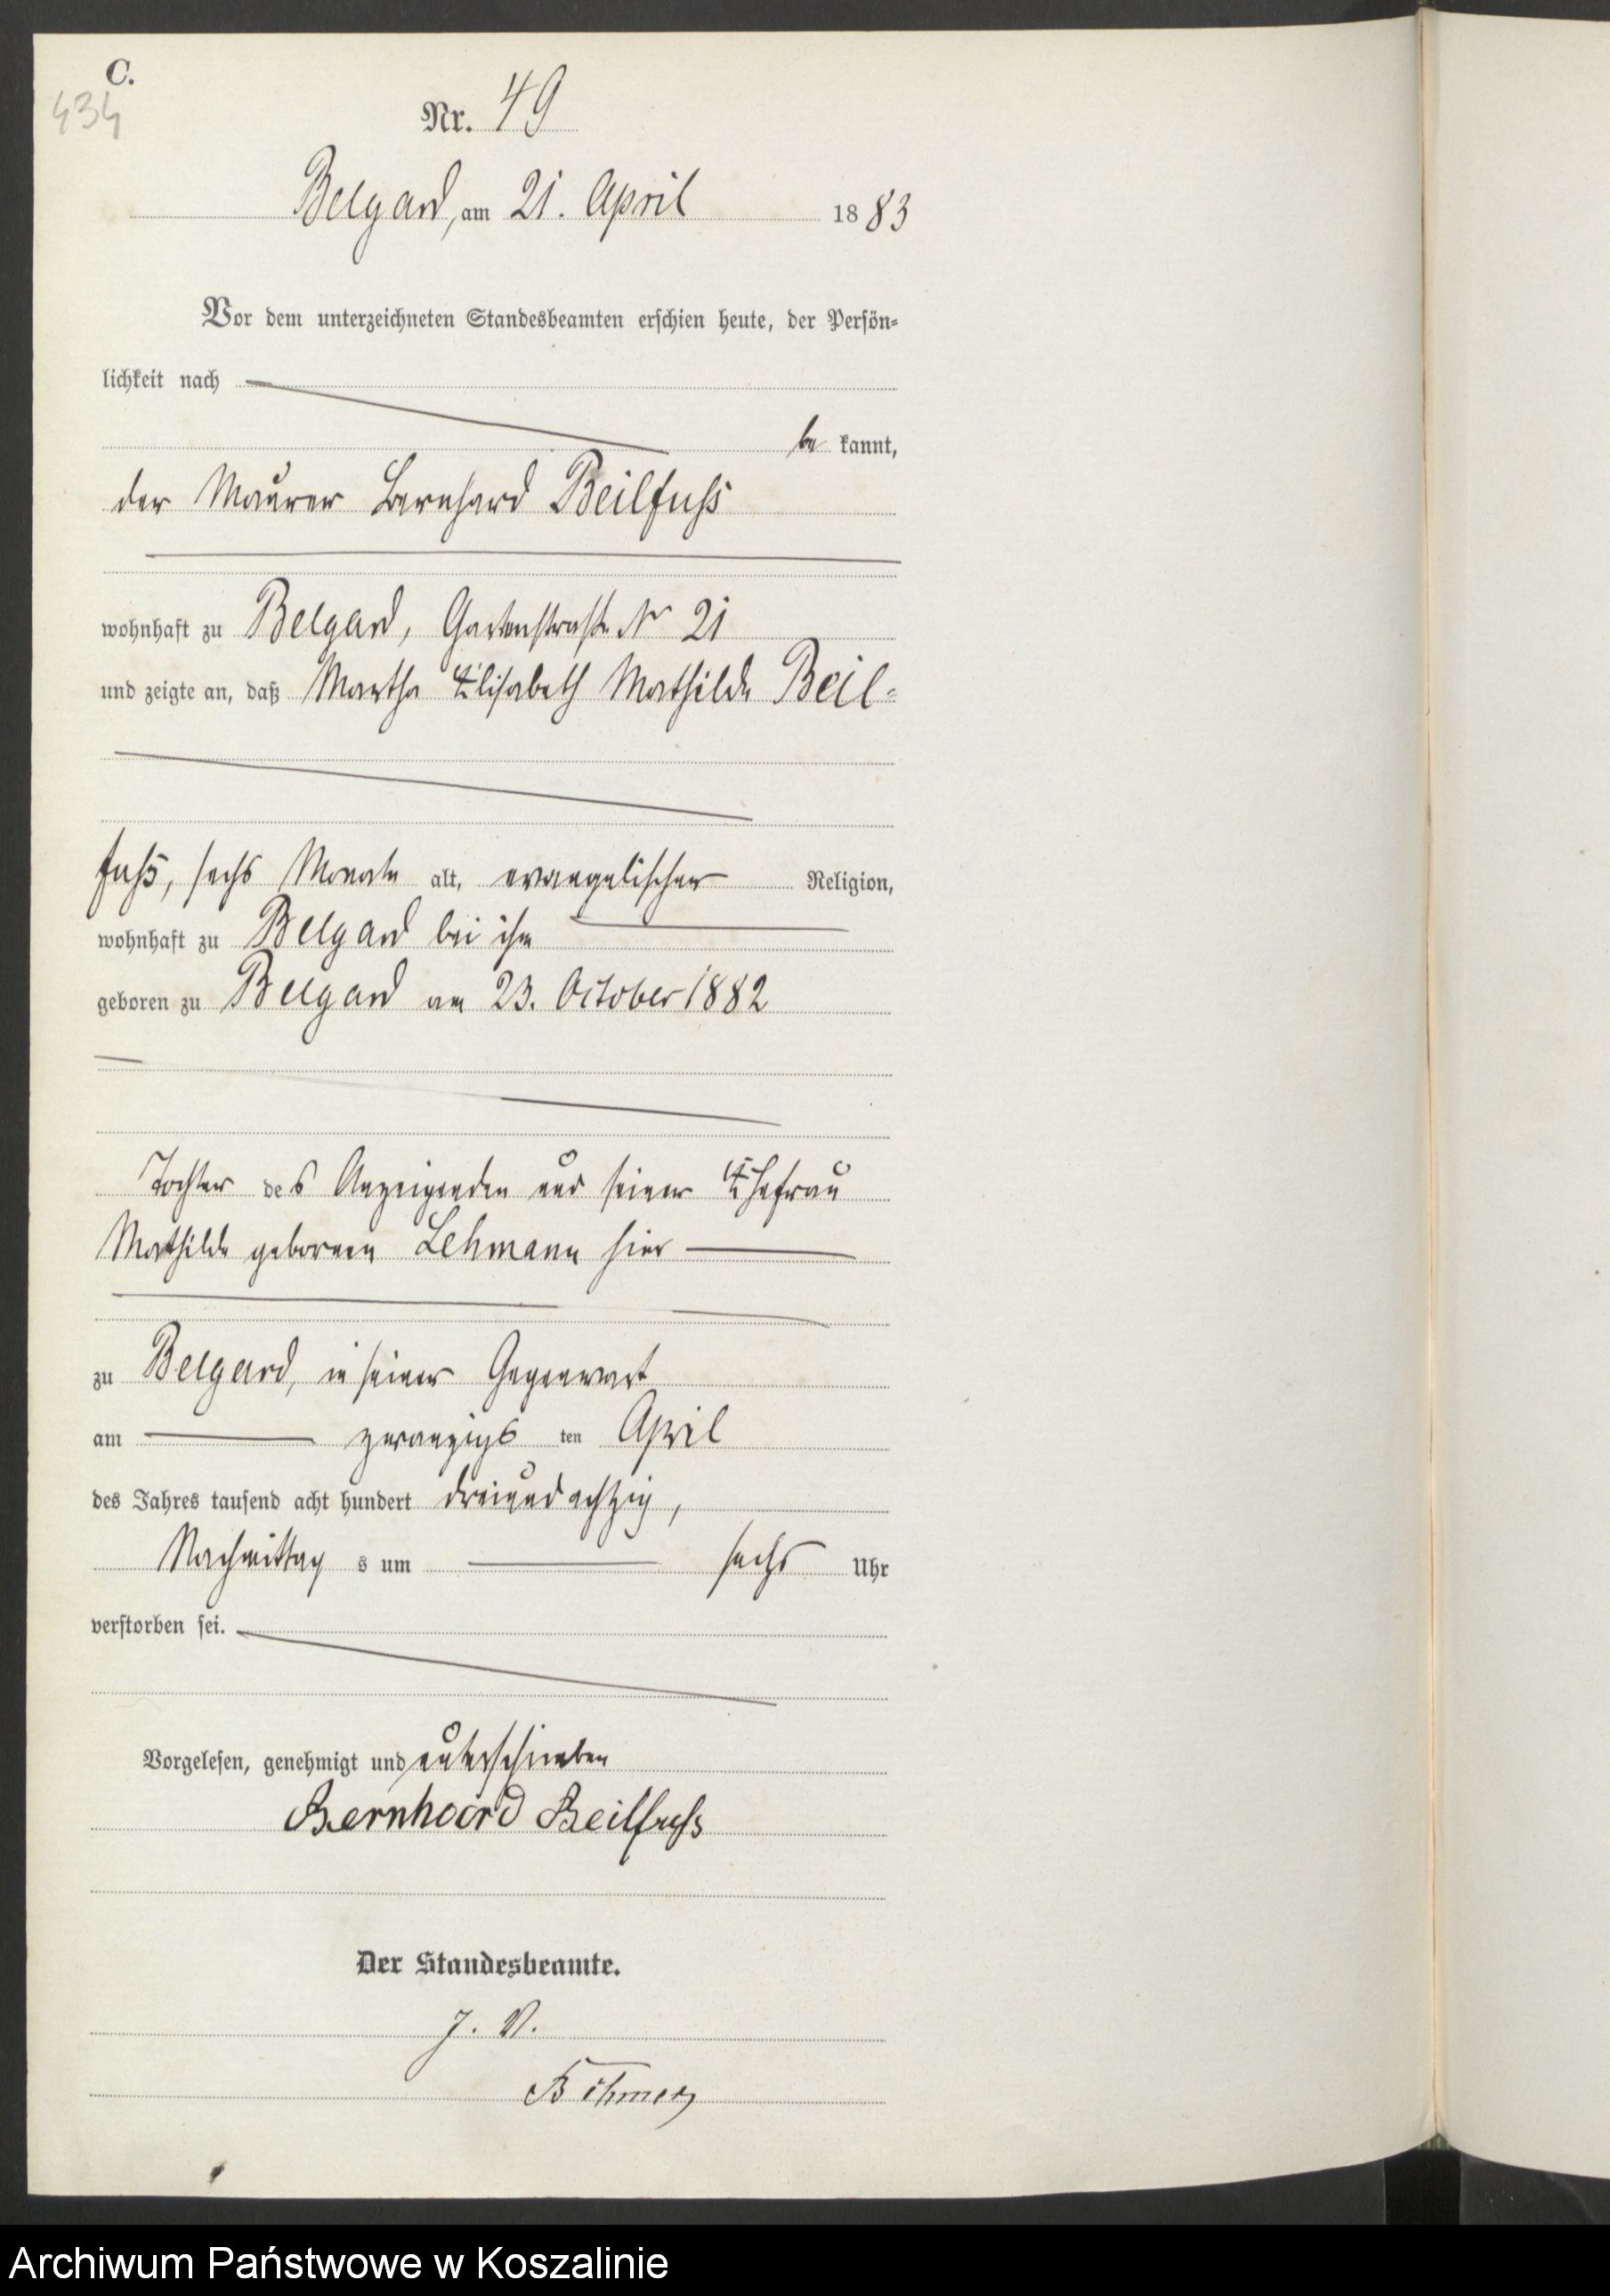 C.
434
Nr. 49
Belgard, am 21. April 1883
Vor dem unterzeichneten Standesbeamten erschien heute, der Persön-
lichkeit nach
be kannt,
der Maurer Bernhard Beilfuß
wohnhaft zu Belgard, Gartenstraße No 21
und zeigte an, daß Martha Elisabeth Mathilde Beil-
fuß, sechs Monate alt, evangelischer Religion,
wohnhaft zu Belgard bei ihm
geboren zu Belgard am 23. October 1882
Tochter des Anzeigenden und seiner Ehefrau
Mathilde geborenen Lehmann hier
zu Belgard, in seiner Gegenwart
am zwanzigsten April
des Jahres tausend acht hundert dreiundachtzig,
Nachmittags um sechs Uhr
verstorben sei.
Vorgelesen, genehmigt und unterschrieben
Bernhard Beilfuß
Der Standesbeamte.
J. V.
Archiwum Państwowe w Koszalinie